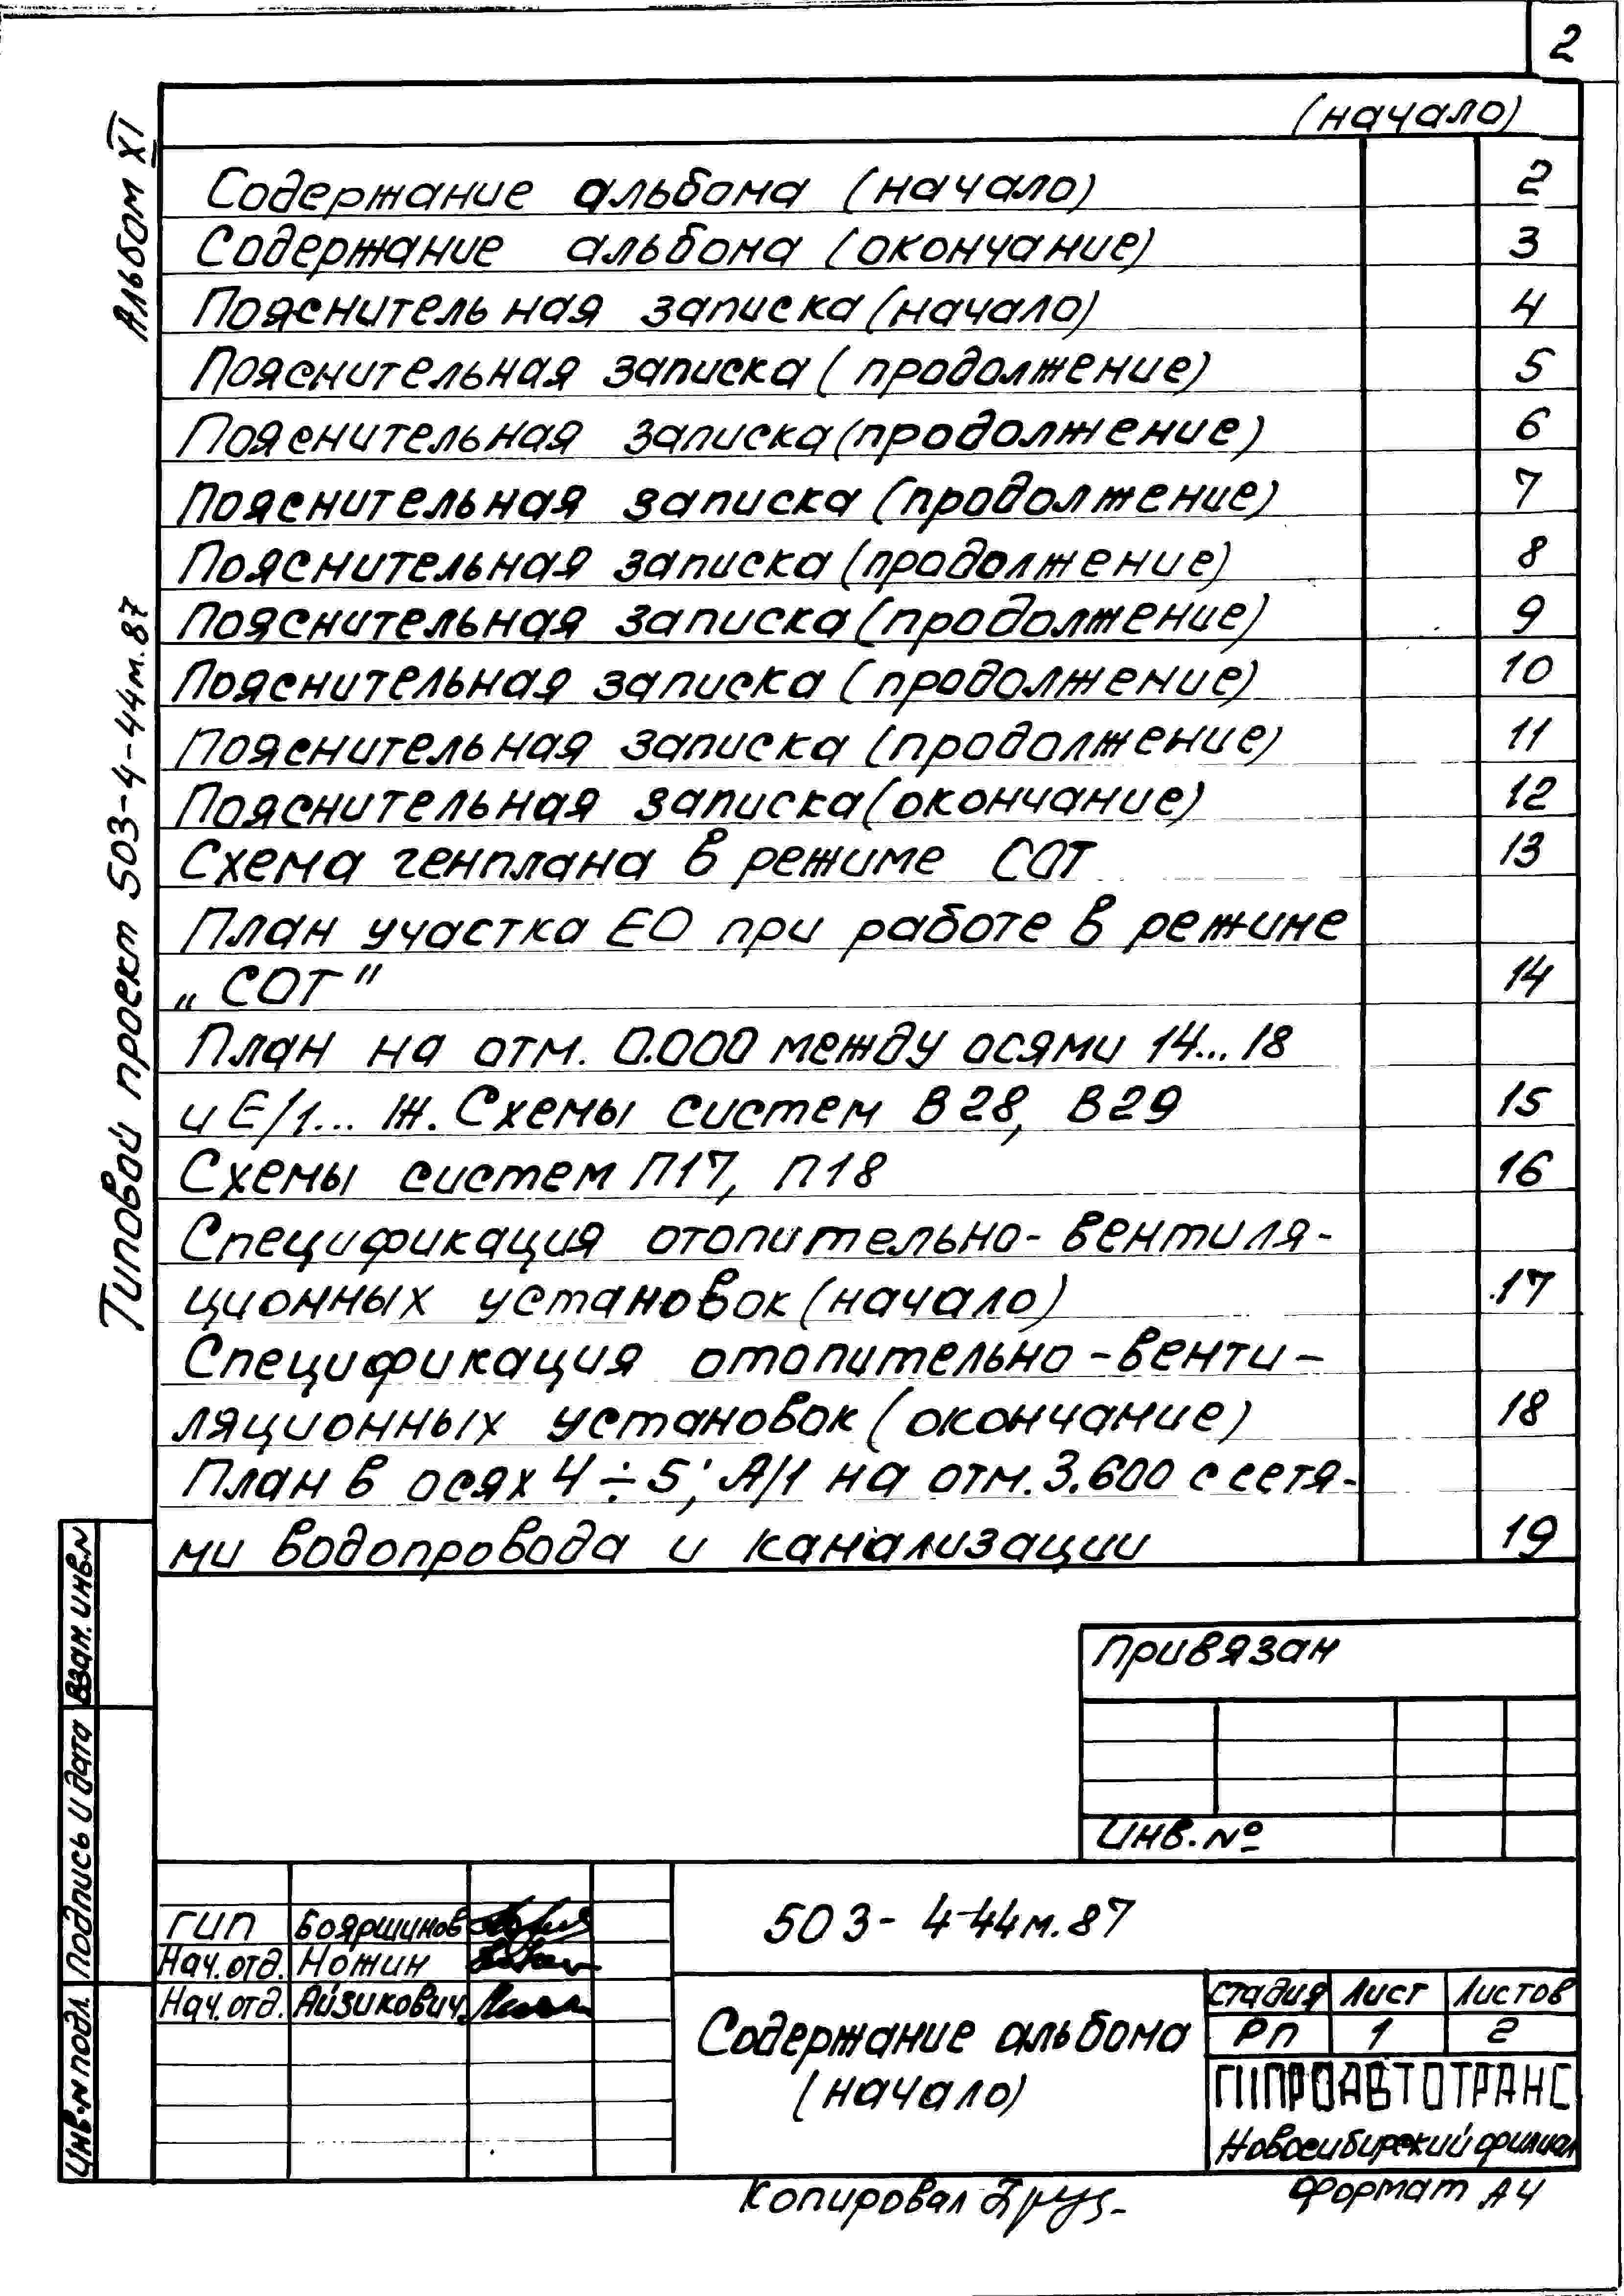 2
(начало)
Содержание альбома (начало) 2
Содержание альбома (окончание) 3
Пояснительная записка (начало) 4
Пояснительная записка (продолжение) 5
Пояснительная записка (продолжение) 6
Пояснительная записка (продолжение) 7
Пояснительная записка (продолжение) 8
Пояснительная записка (продолжение) 9
Пояснительная записка (продолжение) 10
Пояснительная записка (продолжение) 11
Пояснительная записка (окончание) 12
Схема генплана в режиме СОТ 13
План участка ЕО при работе в режиме
„СОТ" 14
План на отм. 0.000 между осями 14...18
и Е/1... Ж. Схемы систем В28, В29 15
Схемы систем П17, П18 16
Спецификация отопительно-вентиля-
ционных установок (начало) 17
Спецификация отопительно-венти-
ляционных установок (окончание) 18
План в осях 4÷5; А/1 на отм. 3.600 с сетя-
ми водопровода и канализации 19
Альбом XI
Типовой проект 503-4-44м.87
Взам. инв.N
Подпись и дата
Инв.N подл.
Привязан
Инв. №
ГИП Бояршинов
Нач. отд. Ножин
Нач. отд. Айзикович
503-4-44м.87
Содержание альбома
(начало)
Стадия Лист Листов
РП 1 2
ГИПРОАВТОТРАНС
Новосибирский филиал
Копировал
Формат А4